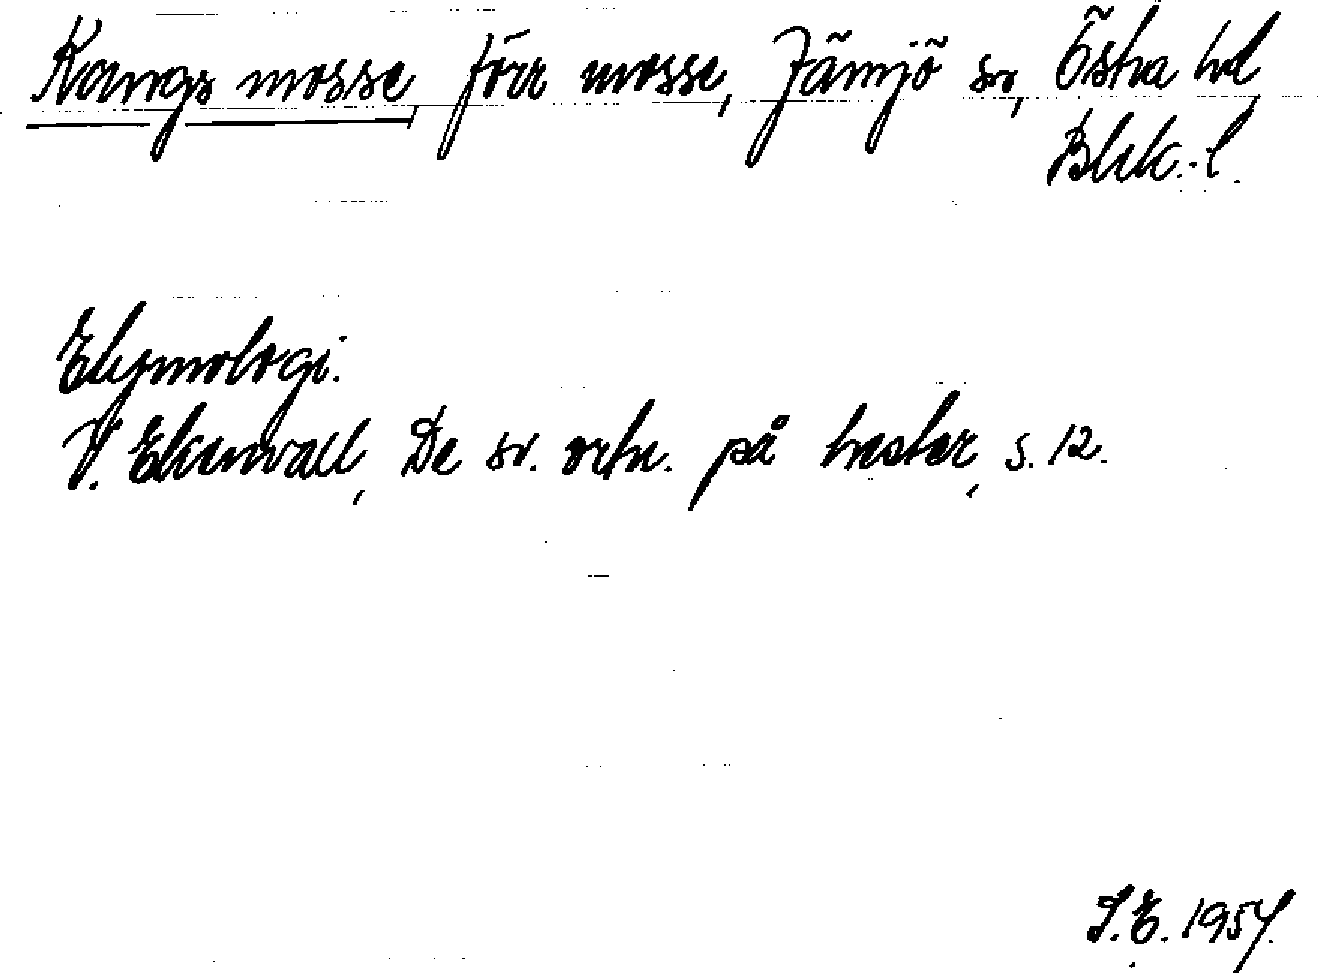 Kangs mosse, förr mosse, Jämjö sn, Östra hd,
Blek. l.
Etymologi.
V. Ekenvall, De sv. ortn. på hester, s. 12.
S.E. 1957.